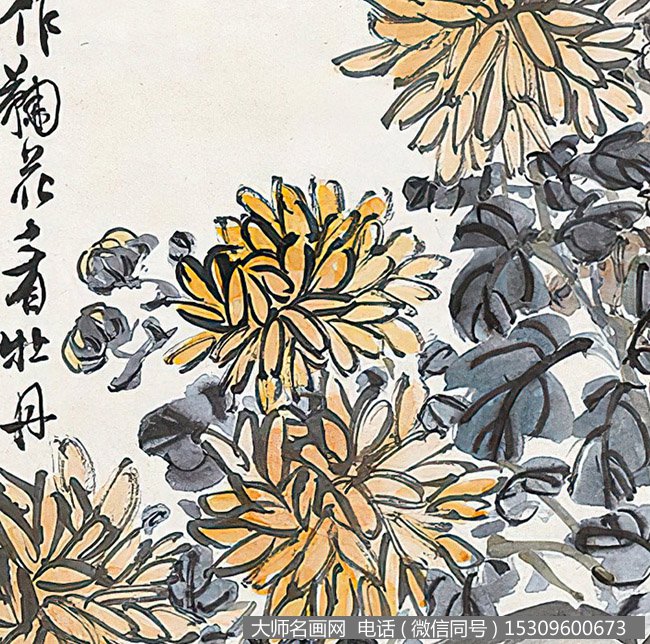 作鞠花看牡丹
大师名画网 电话（微信同号）15309600673